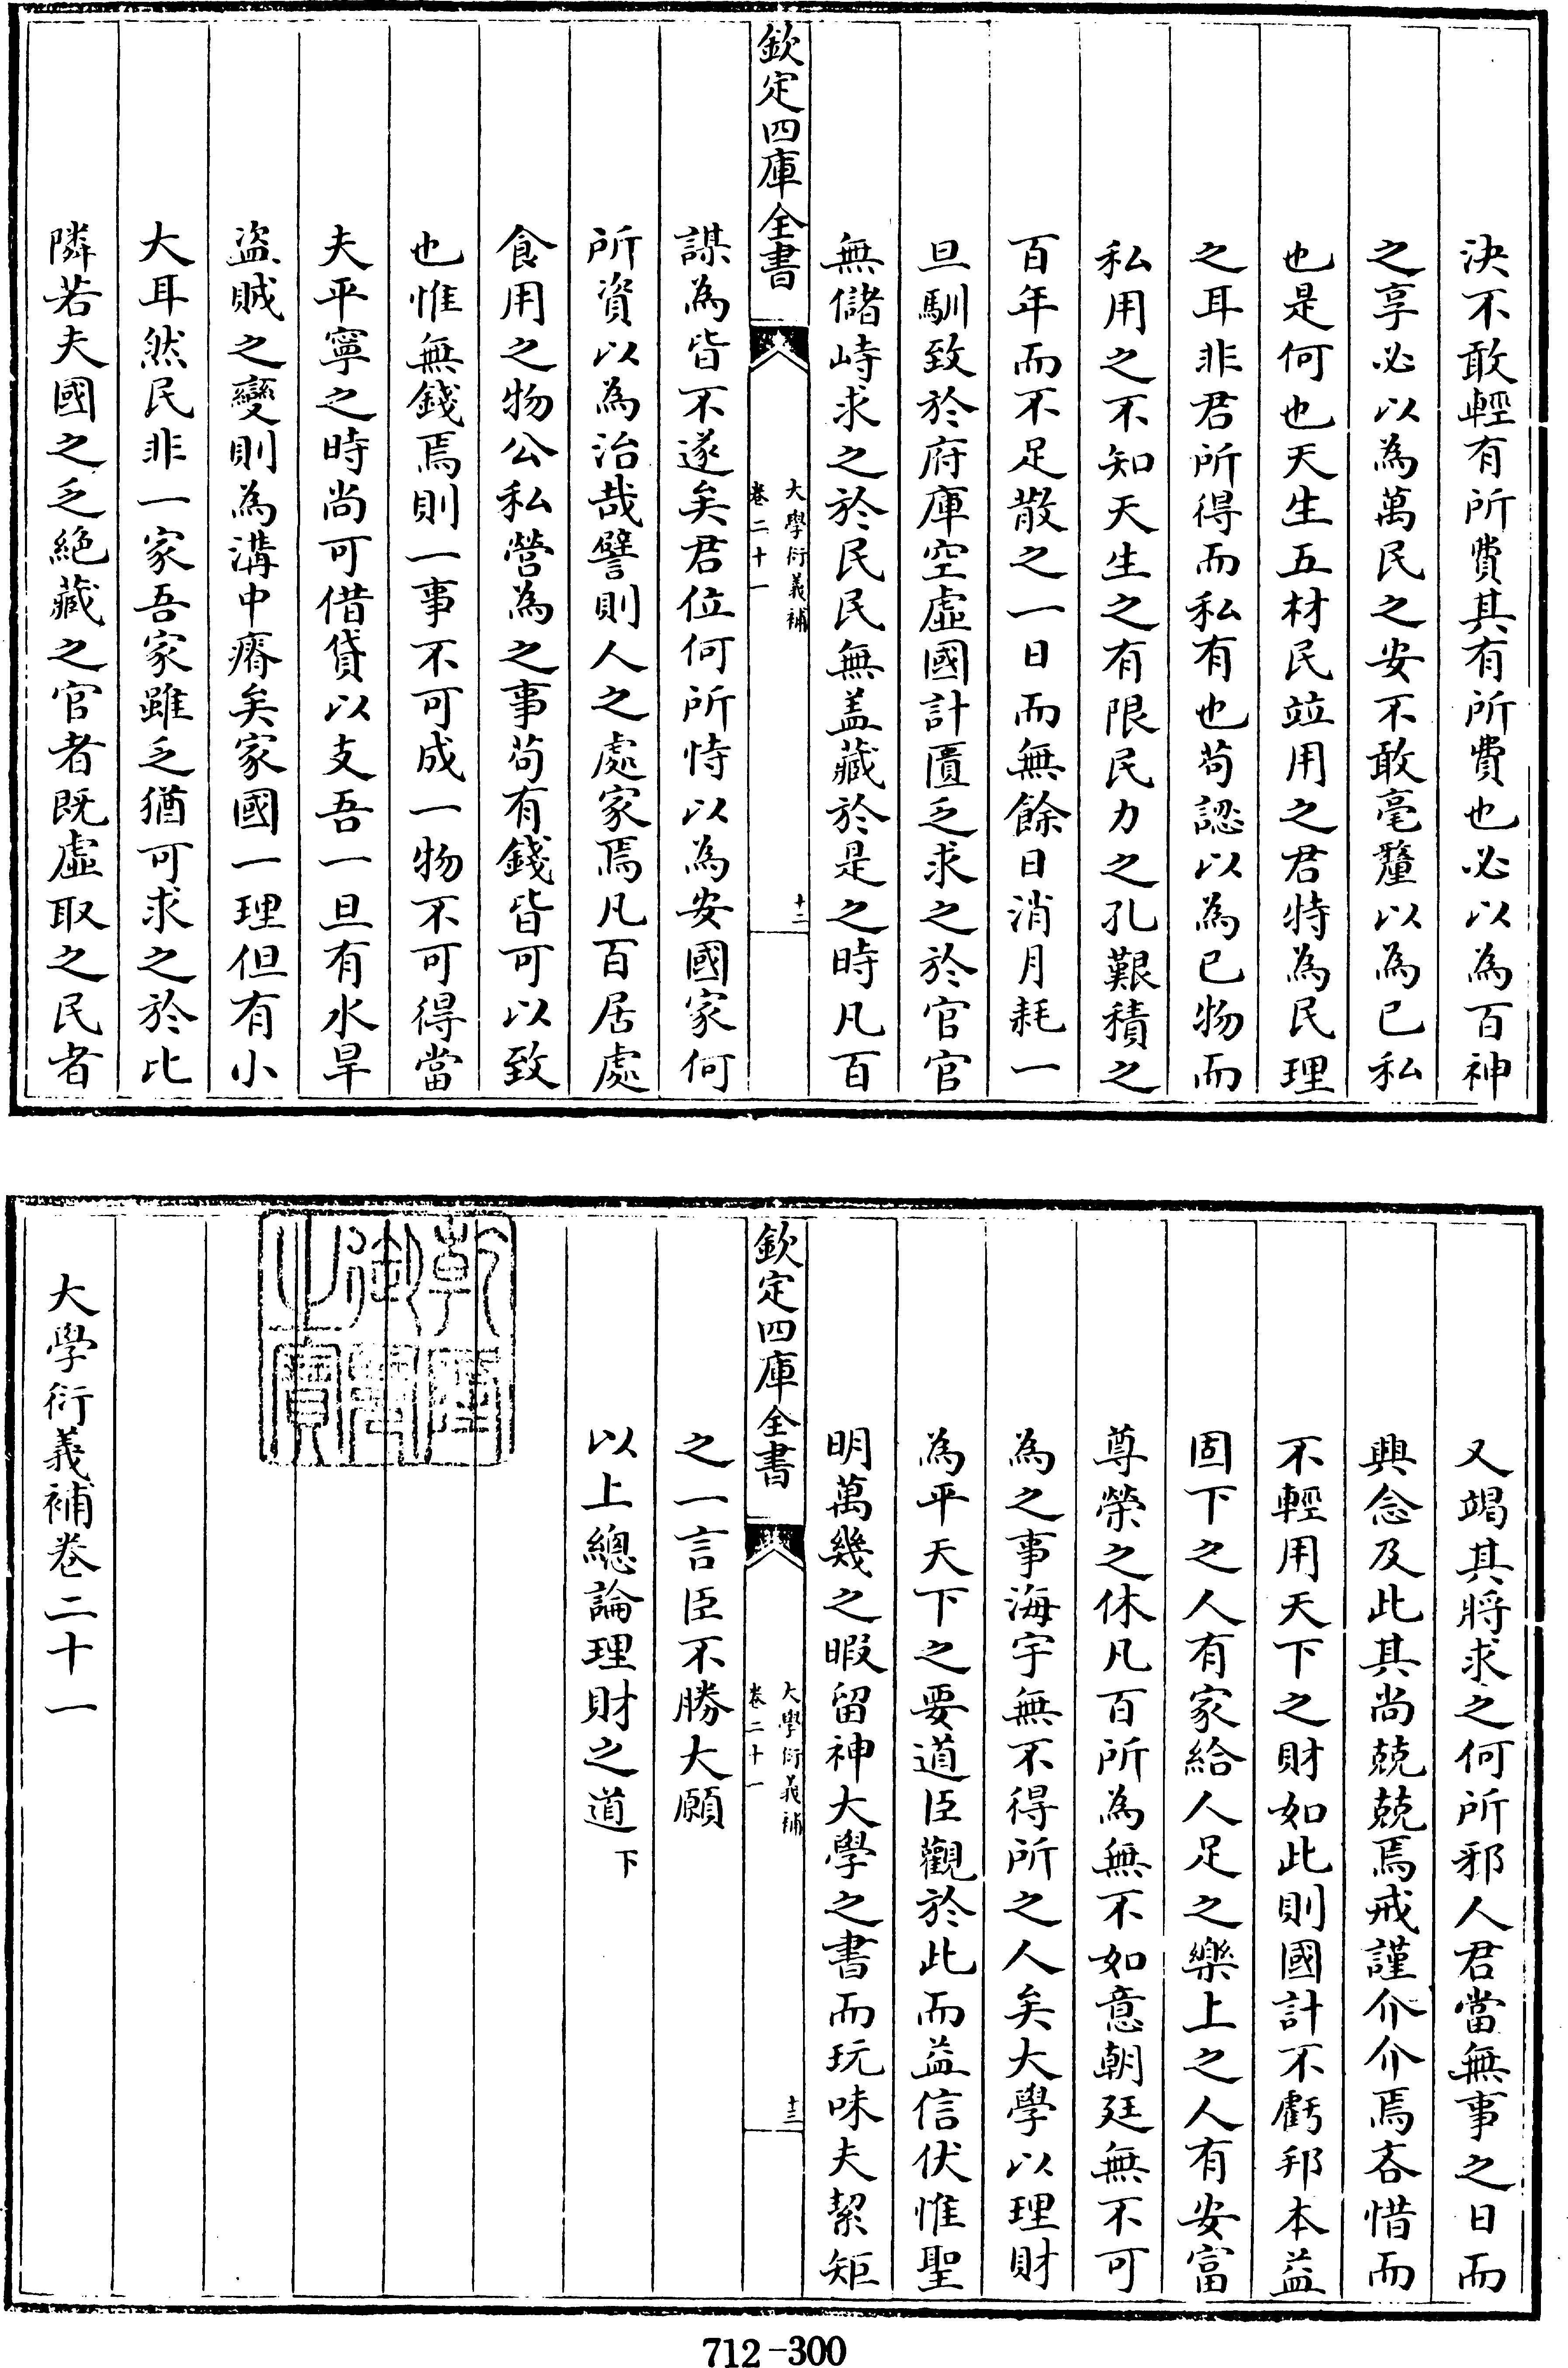 決不敢輕有所費其有所費也必以為百神
之享必以為萬民之安不敢毫釐以為己私
也是何也天生五材民竝用之君特為民理
之耳非君所得而私有也苟認以為己物而
私用之不知天生之有限民力之孔艱積之
百年而不足散之一日而無餘日消月耗一
旦馴致於府庫空虛國計匱乏求之於官官
無儲峙求之於民民無蓋藏於是之時凡百
欽定四庫全書
大學衍義補
卷二十一
十二
謀為皆不遂矣君位何所恃以為安國家何
所資以為治哉譬則人之處家焉凡百居處
食用之物公私營為之事苟有錢皆可以致
也惟無錢焉則一事不可成一物不可得當
夫平寧之時尚可借貸以支吾一旦有水旱
盜賊之變則為溝中瘠矣家國一理但有小
大耳然民非一家吾家雖乏猶可求之於比
隣若夫國之乏絕藏之官者既虛取之民者
又竭其將求之何所邪人君當無事之日而
興念及此其尚兢兢焉戒謹介介焉吝惜而
不輕用天下之財如此則國計不虧邦本益
固下之人有家給人足之樂上之人有安富
尊榮之休凡百所為無不如意朝廷無不可
為之事海宇無不得所之人矣大學以理財
為平天下之要道臣觀於此而益信伏惟聖
明萬幾之暇留神大學之書而玩味夫絜矩
欽定四庫全書
大學衍義補
卷二十一
十三
之一言臣不勝大願
以上總論理財之道下
乾隆御覽之寶
大學衍義補卷二十一
712-300